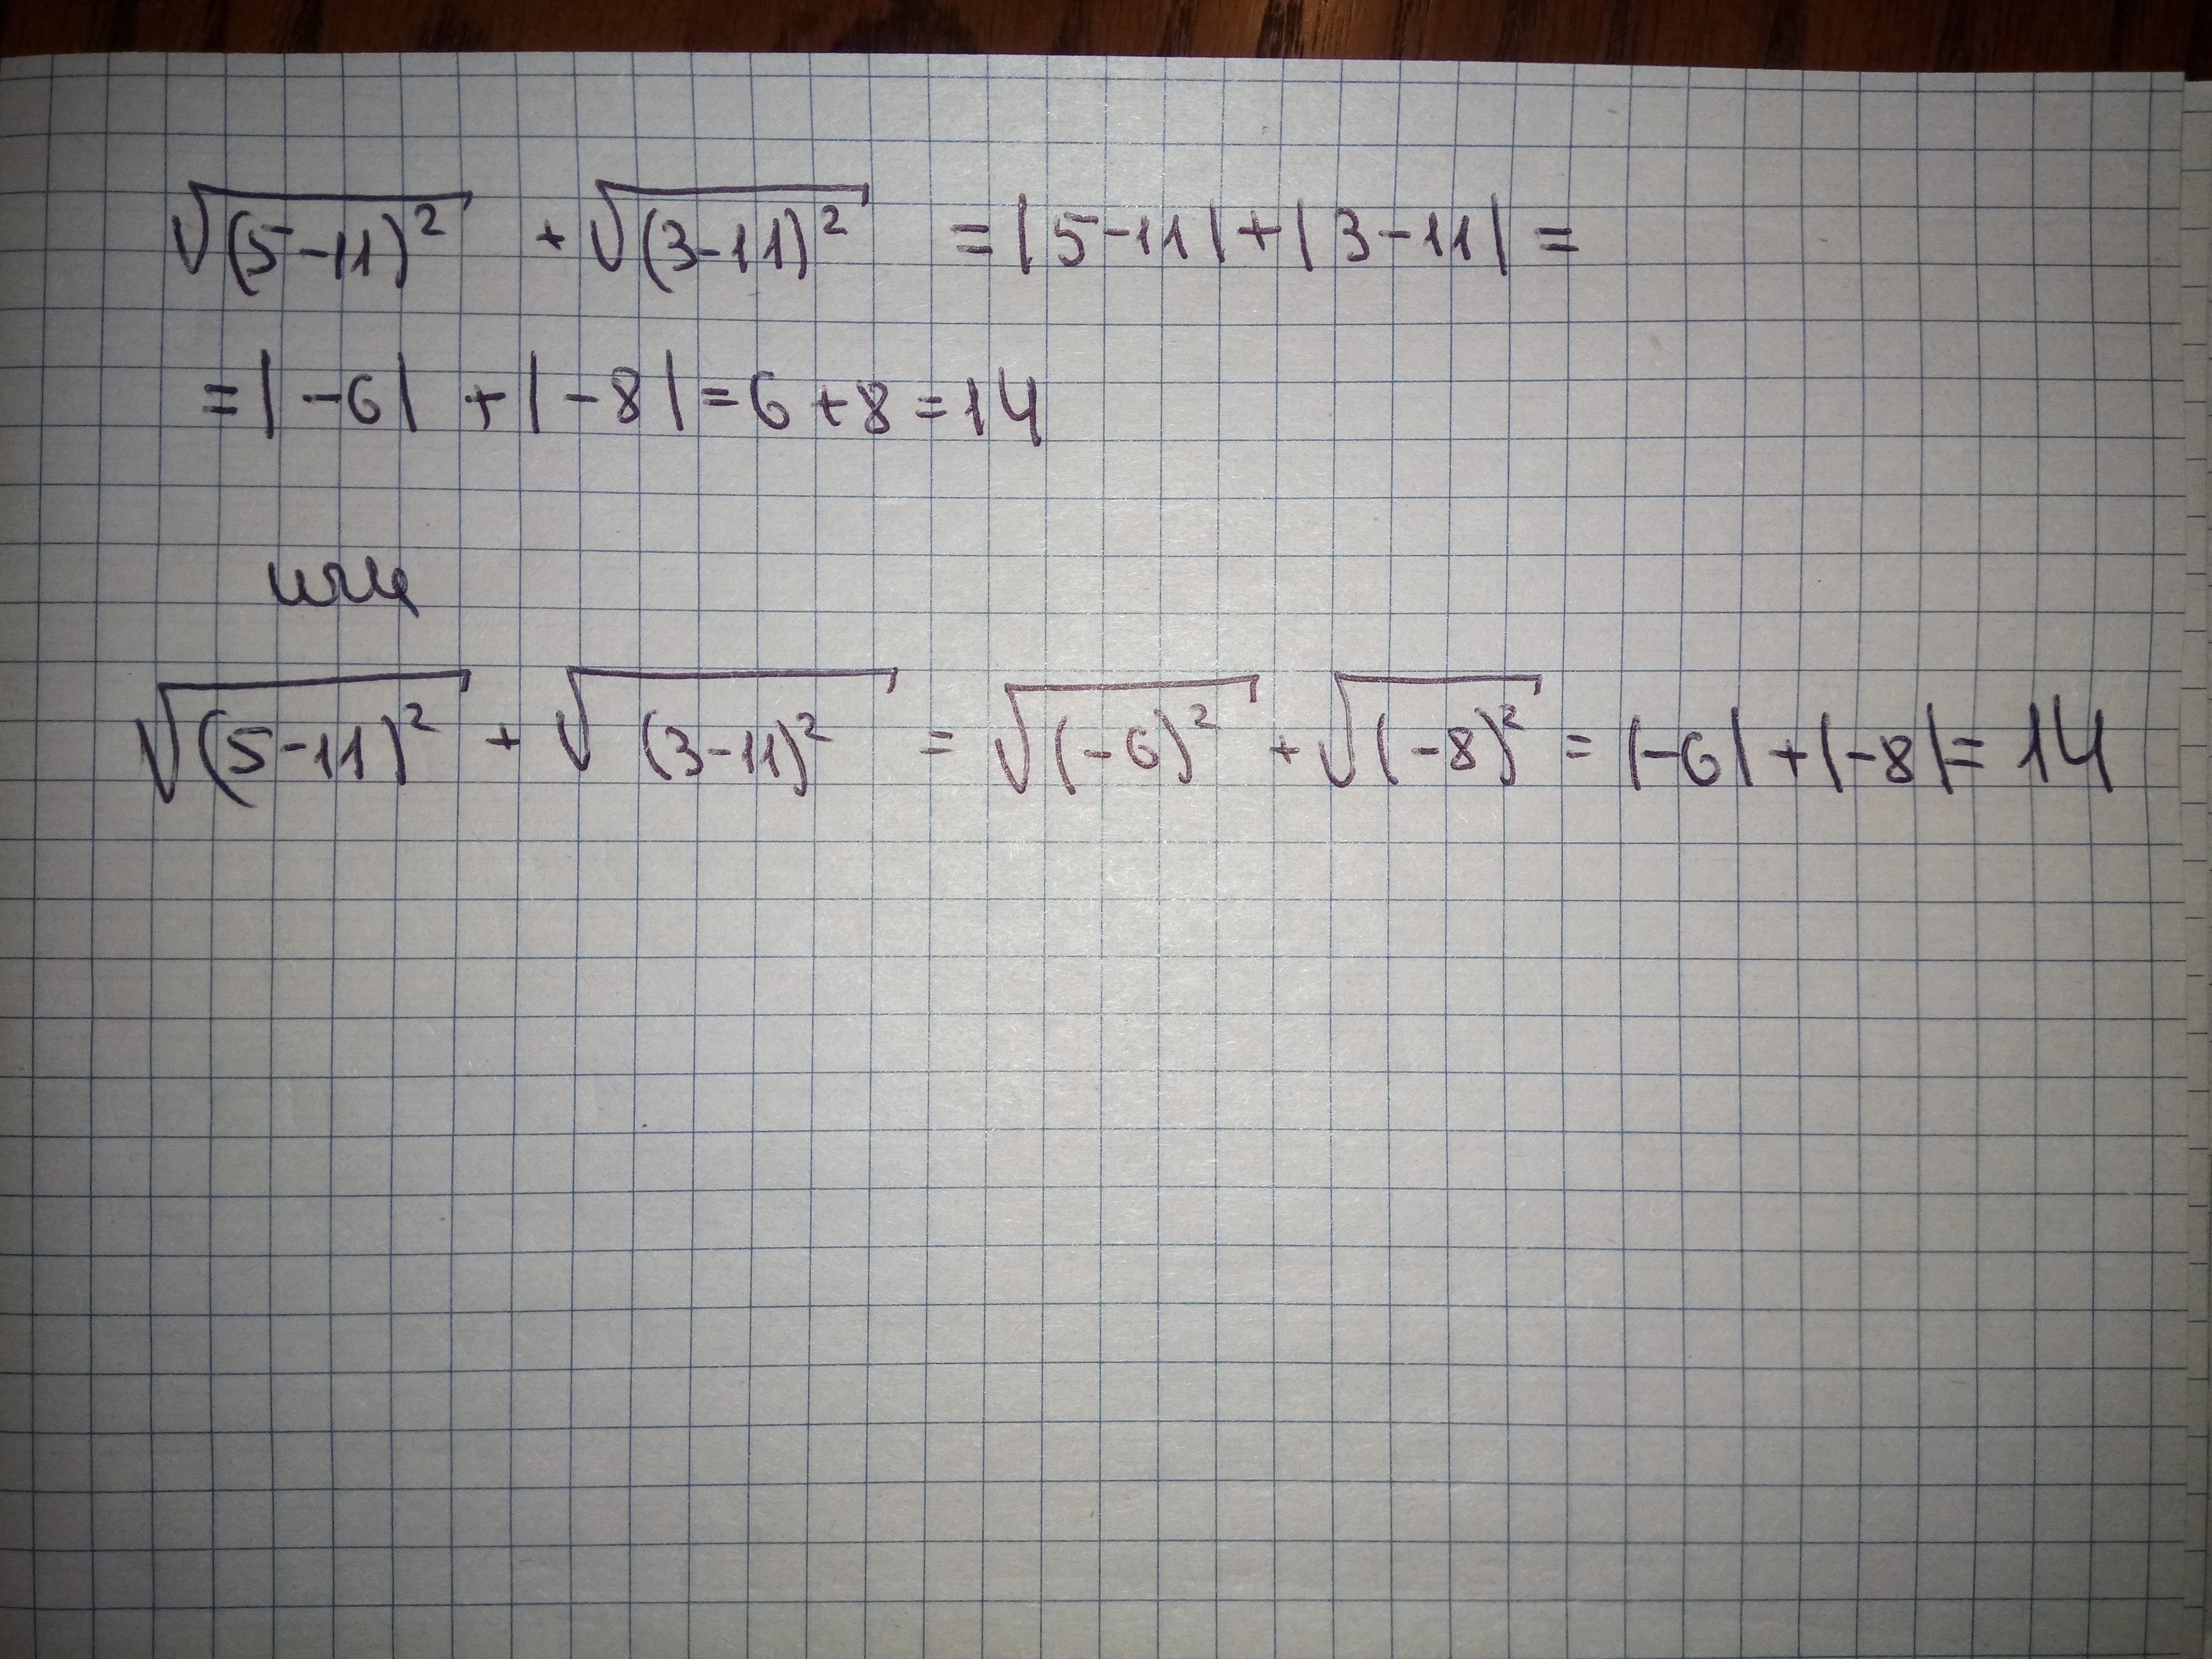 √(5-11)² + √(3-11)² = |5-11| + |3-11| =
= |-6| + |-8| = 6 + 8 = 14
или
√(5-11)² + √(3-11)² = √(-6)² + √(-8)² = |-6| + |-8| = 14